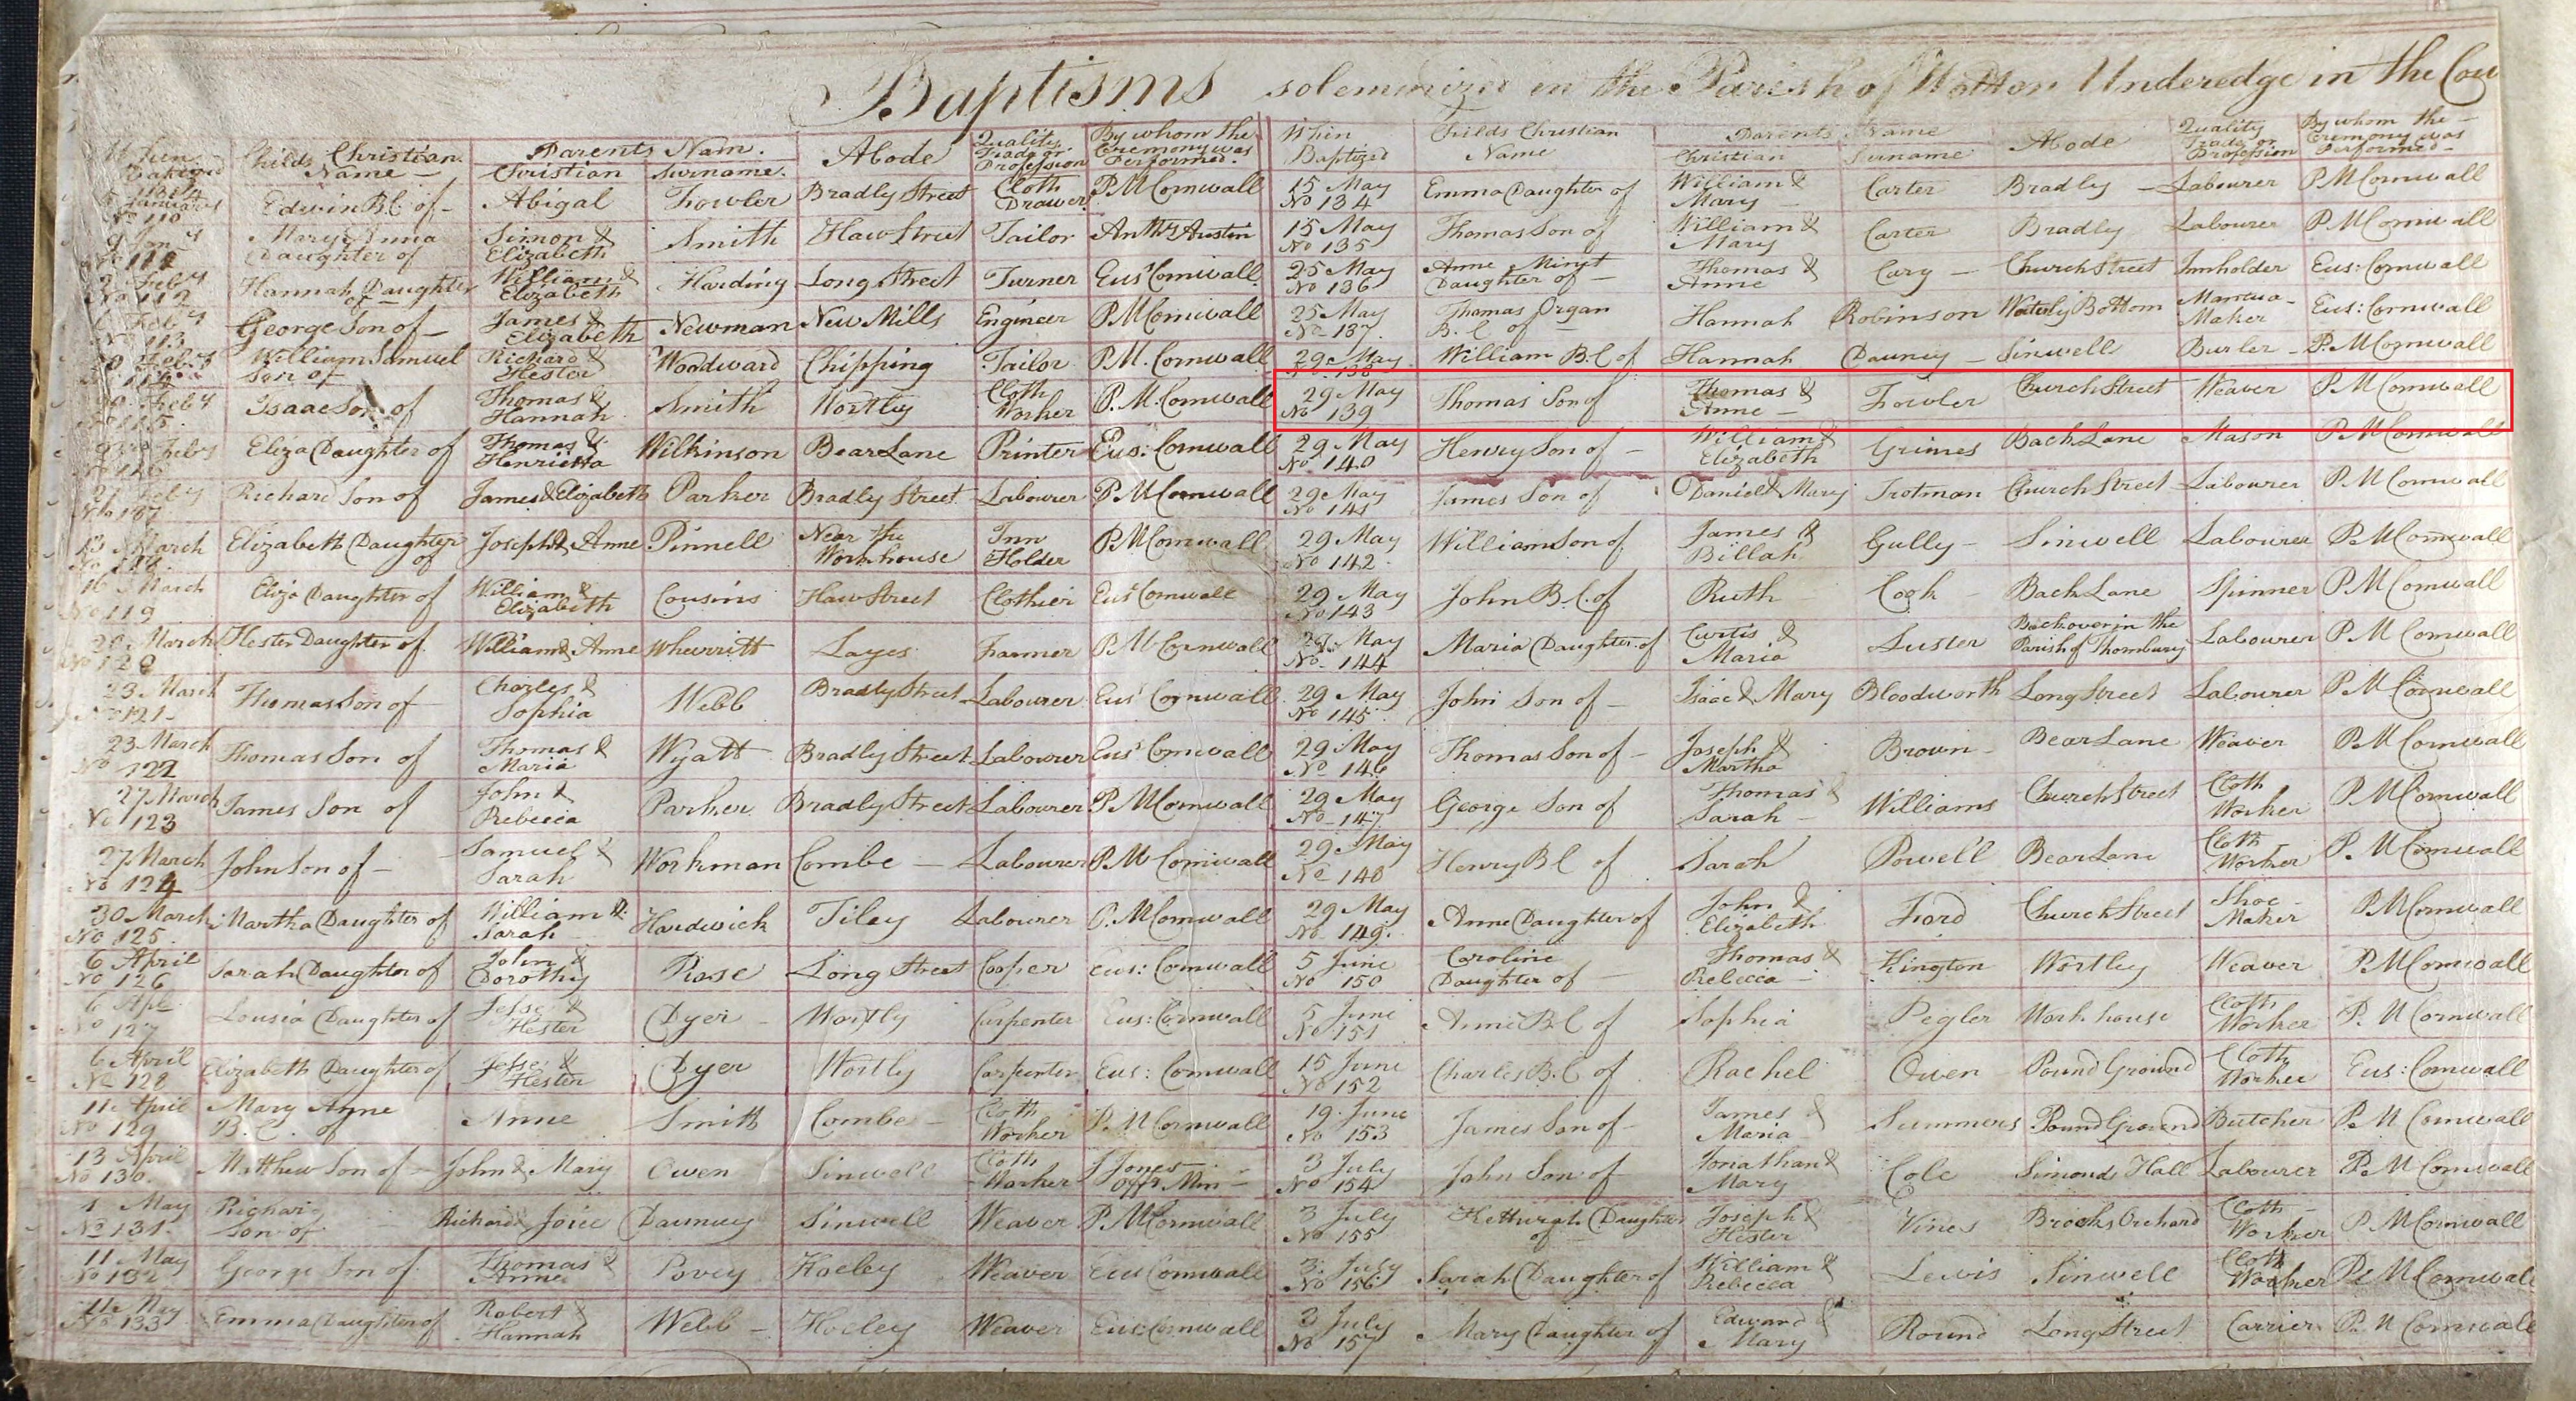 Baptisms solemnized in the Parish of Wotton Underedge in the Cou
When Baptized | Childs Christian Name — | Parents Nam. Christian | Surname. | Abode | Quality, Trade or Profession | By whom the Ceremony was Performed.
5 January No 110 | Edwin B.C. of — | Abigal | Fowler | Bradly Street | Cloth Drawer | P M Cornwall
9 Jany No 111 | Mary Anna Daughter of | Simon & Elizabeth | Smith | Haw Street | Tailor | Anthy Austin
2 Feby No 112 | Hannah Daughter of — | William & Elizabeth | Harding | Long Street | Turner | Eus: Cornwall
Feby No 113 | George Son of — | James & Elizabeth | Newman | New Mills | Engineer | P M Cornwall
Feby No 114 | William Samuel Son of | Richard & Hester | Woodward | Chipping | Tailor | P. M. Cornwall
Feby No 115 | Isaac Son of | Thomas & Hannah | Smith | Wortley | Cloth Worker | P. M. Cornwall
Feby No 116 | Eliza Daughter of | Thomas & Henrietta | Wilkinson | Bear Lane | Printer | Eus: Cornwall
Feby No 117 | Richard Son of | James & Elizabeth | Parker | Bradly Street | Labourer | P M Cornwall
13 March No 118 | Elizabeth Daughter of | Joseph & Anne | Pinnell | Near the Workhouse | Inn Holder | P M Cornwall
16 March No 119 | Eliza Daughter of | William & Elizabeth | Cousins | Haw Street | Clothier | Eus Cornwall
March No 120 | Hester Daughter of | William & Anne | Wherritt | Layes | Farmer | P M Cornwall
23 March No 121 | Thomas Son of | Charles & Sophia | Webb | Bradly Street | Labourer | Eus Cornwall
23 March No 122 | Thomas Son of | Thomas & Maria | Wyatt | Bradly Street | Labourer | Eus Cornwall
27 March No 123 | James Son of | John & Rebecca | Parker | Bradly Street | Labourer | P M Cornwall
27 March No 124 | John Son of — | Samuel & Sarah | Workman | Combe — | Labourer | P M Cornwall
30 March No 125 | Martha Daughter of | William & Sarah | Hardwick | Tiley | Labourer | P. M Cornwall
6 April No 126 | Sarah Daughter of | John & Dorothy | Rose | Long Street | Cooper | Eus: Cornwall
6 Apl No 127 | Lousia Daughter of | Jesse & Hester | Dyer — | Wortly | Carpenter | Eus: Cornwall
6 April No 128 | Elizabeth Daughter of | Jesse & Hester | Dyer | Wortly | Carpenter | Eus: Cornwall
11 April No 129 | Mary Anne B. C. of | Anne | Smith | Combe — | Cloth Worker | P. M Cornwall
13 April No 130. | Matthew Son of — | John & Mary | Owen | Sinwell | Cloth Worker | J Jones Offg Min —
1 May No 131. | Richard Son of | Richard & Joice | Dauncey | Sinwell | Weaver | P M Cornwall
11 May No 132 | George Son of | Thomas & Anne | Povey | Holeley | Weaver | Eus Cornwall
11 May No 133 | Emma Daughter of | Robert & Hannah | Webb — | Holeley | Weaver | Eus: Cornwall
When Baptized | Childs Christian Name | Parents Name Christian | Surname | Abode | Quality Trade or Profession | By whom the — Ceremony was Performed —
15 May No 134 | Emma Daughter of | William & Mary | Carter | Bradly — | Labourer | P M Cornwall
15 May No 135 | Thomas Son of | William & Mary | Carter | Bradly | Labourer | P. M Cornwall
25 May No 136 | Anne Daughter of — | Thomas & Anne | Cary — | Church Street | Innholder | Eus: Cornwall
25 May No 137 | Thomas Organ B. C of — | Hannah | Robinson | Bottom | Mantua-Maker | Eus: Cornwall
29 May No 138 | William B.C of | Hannah | Dauncy — | Sinwell | Burler — | P. M Cornwall
29 May No 139 | Thomas Son of | Thomas & Anne — | Fowler | Church Street | Weaver | P. M Cornwall
29 May No 140 | Henry Son of — | William & Elizabeth | Grimes | Back Lane | Mason | P M Cornwall
29 May No 141 | James Son of | Daniel & Mary | Trotman | Church Street | Labourer | P. M Cornwall
29 May No 142 | William Son of | James & Billah | Gully — | Sinwell | Labourer | P. M Cornwall
29 May No 143 | John B.C. of | Ruth | Cook | Back Lane | Spinner | P M Cornwall
29 May No 144 | Maria Daughter of | Curtis & Maria | Luster | Backover in the Parish of Thornbury | Labourer | P M Cornwall
29 May No 145 | John Son of — | Isaac & Mary | Bloodworth | Long Street | Labourer | P M Cornwall
29 May No 146 | Thomas Son of — | Joseph & Martha | Brown — | Bear Lane | Weaver | P M Cornwall
29 May No 147 | George Son of | Thomas & Sarah — | Williams | Church Street | Cloth Worker | P M Cornwall
29 May No 148 | Henry B C of | Sarah | Powell | Bear Lane | Cloth Worker | P. M Cornwall
29 May No 149. | Anne Daughter of | John & Elizabeth | Ford | Church Street | Shoe-Maker | P M Cornwall
5 June No 150 | Caroline Daughter of — | Thomas & Rebecca — | Kington | Wortley | Weaver | P. M Cornwall
5 June No 151 | Anne B.C of | Sophia | Pegler | Work house | Cloth Worker | P. M Cornwall
15 June No 152 | Charles B.C of | Rachel | Owen | Pound Ground | Cloth Worker | Eus: Cornwall
19 June No 153 | James Son of — | James & Maria | Summers | Pound Ground | Butcher | P. M Cornwall
3 July No 154 | John Son of | Jonathan & Mary | Cole | Simonds Hall | Labourer | P. M Cornwall
3 July No 155 | Ketturah Daughter of | Joseph & Hester | Vines | Brooks Orchard | Cloth — Worker | P M Cornwall
3 July No 156 | Sarah Daughter of | William & Rebecca | Lewis | Sinwell | Cloth Worker | P. M Cornwall
3 July No 157 | Mary Daughter of | Edward & Mary | Round | Long Street | Carrier | P. M Cornwall